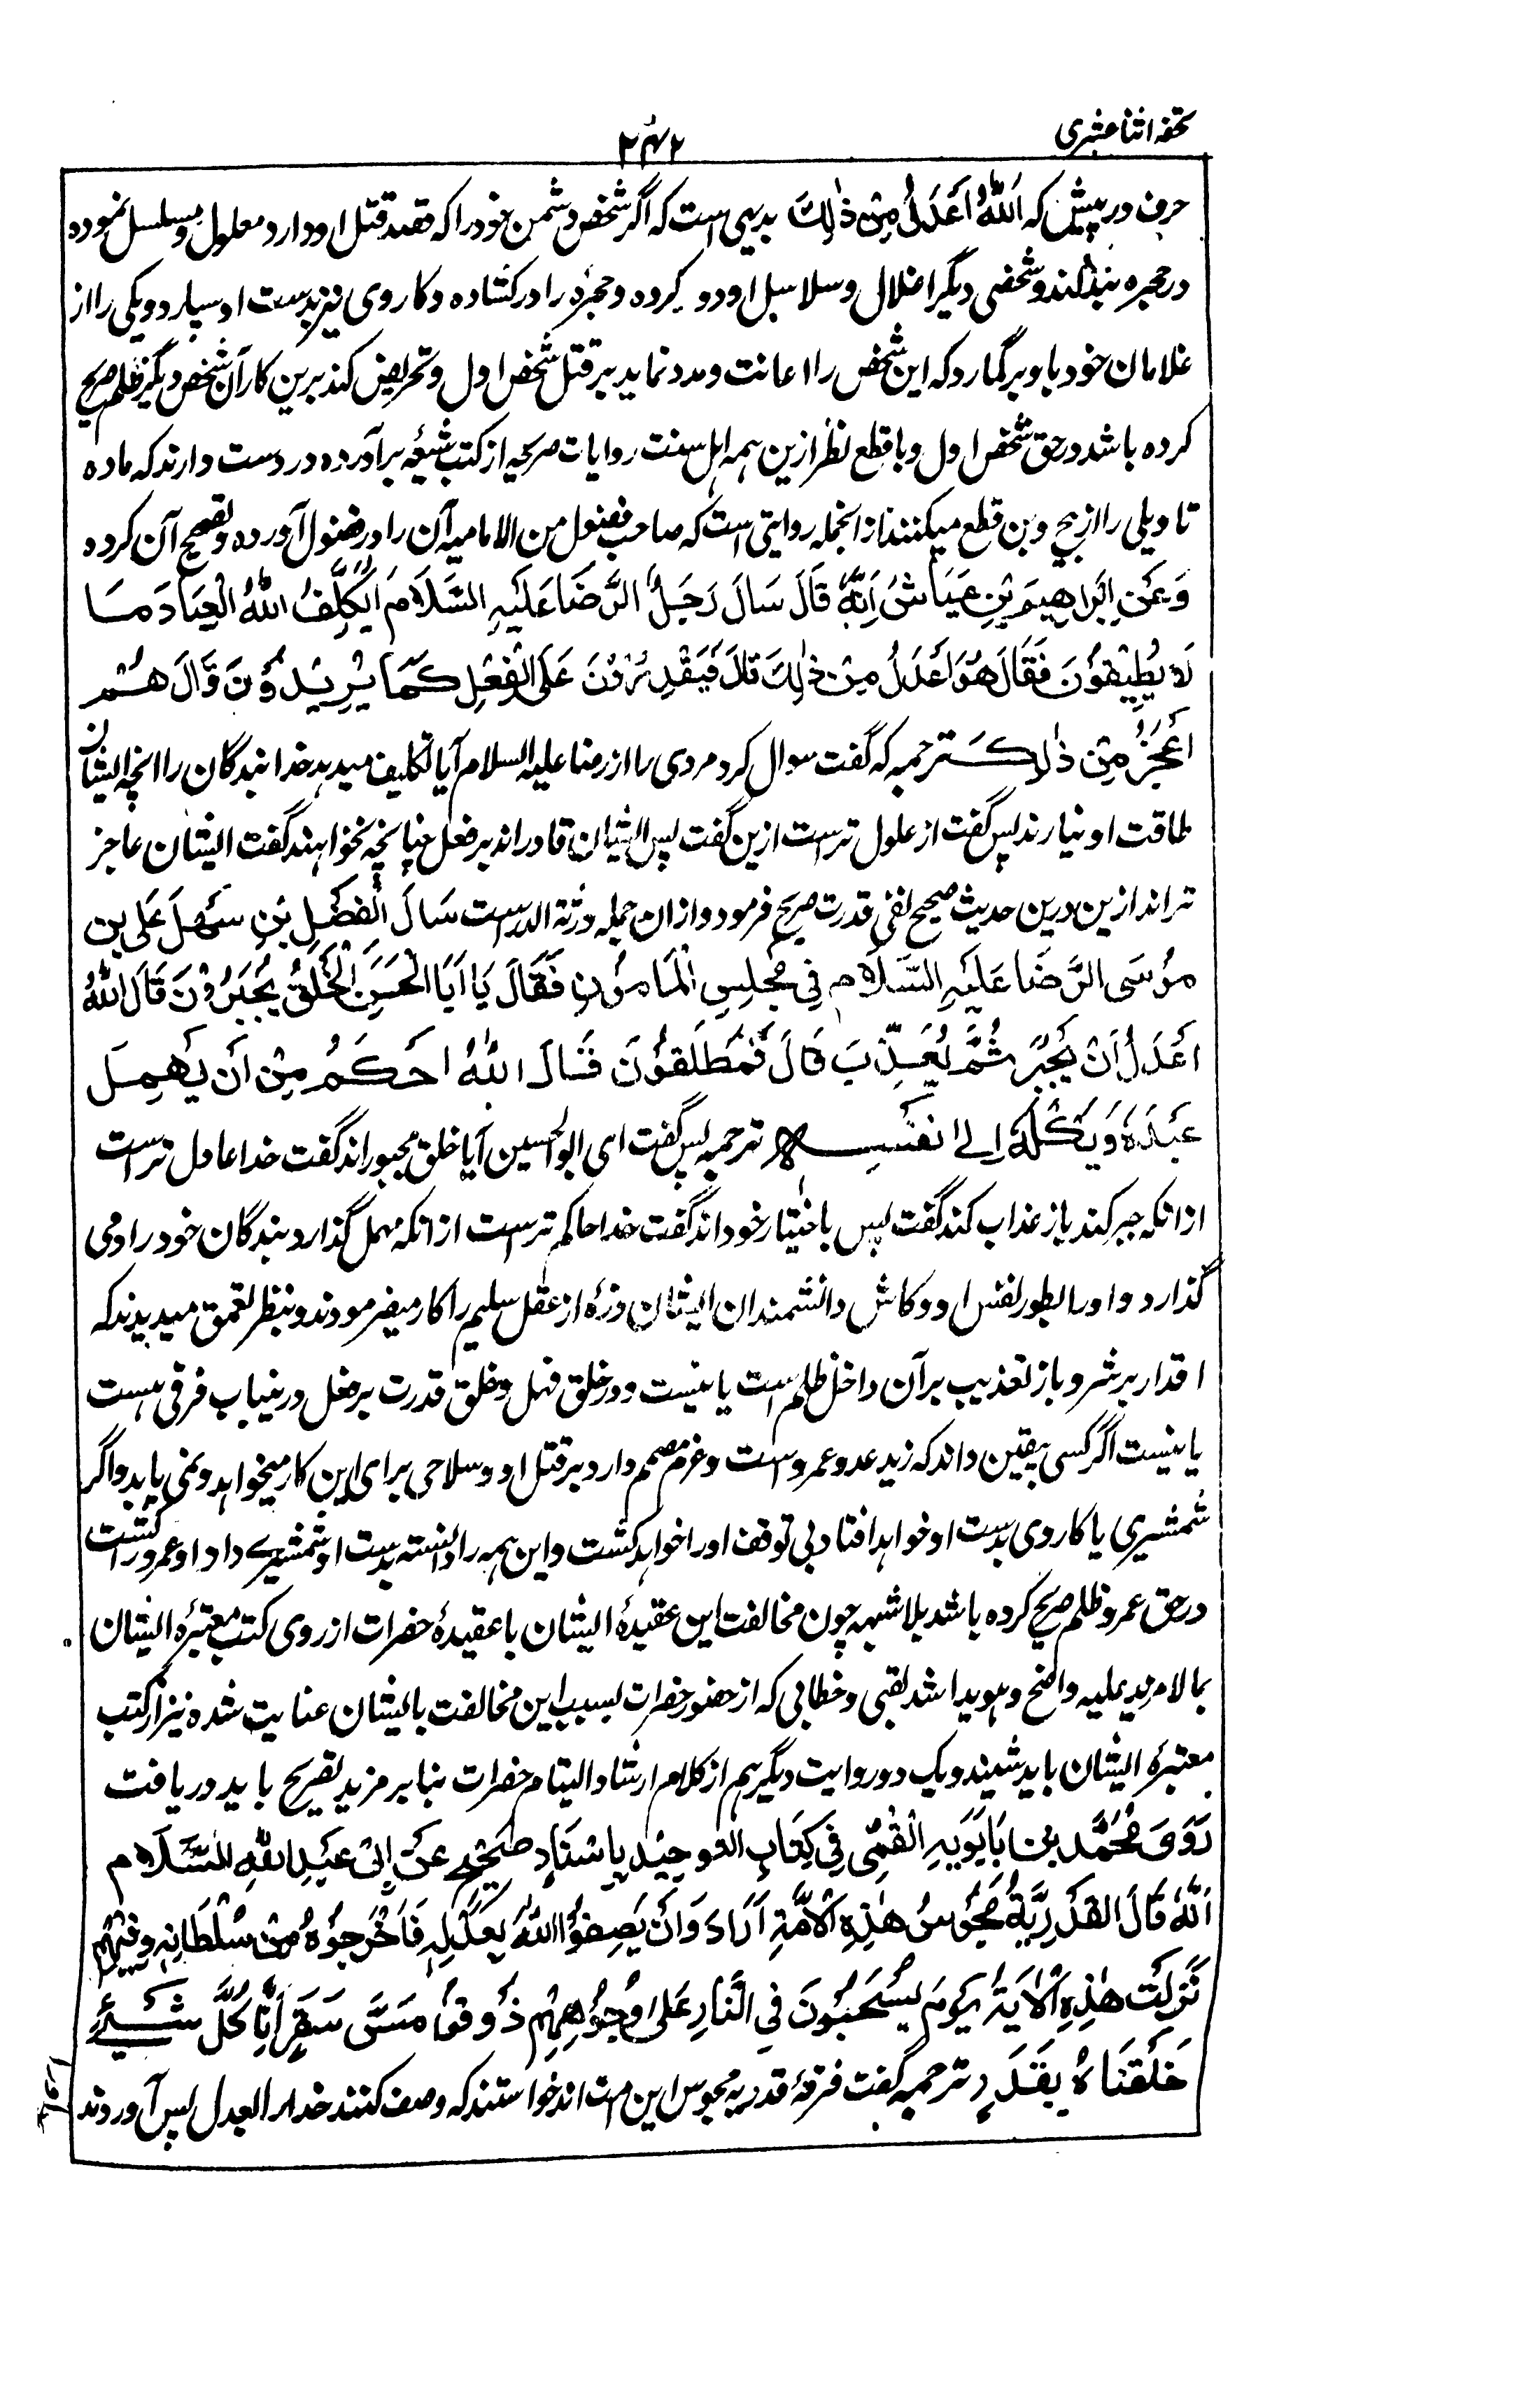 تحفہ اثنا عشری
۲۴۲
حرف در پیش کہ اَللّٰهُ اَعْدَلُ مِنْ ذٰلِكَ بدیہی است کہ اگر شخص دشمن خود را کہ قصد قتل او دارد معلول و مسلسل نموده
در حجره بند کند و شخصی دیگر اغلال و سلاسل او دور کرده و حجره را در کشاده و کاردی نیز بدست او سپارد و یکی را از
غلامان خود باو برگمارد کہ این شخص را اعانت و مدد نماید بر قتل شخص اول و تحریض کند برین کار آن شخص دیگر ظلم صریح
کرده باشد در حق شخص اول و با قطع نظر ازین ہمہ اہل سنت روایات صریحہ از کتب شیعہ برآورده در دست دارند کہ ماده
تاویلی را از بیخ و بن قطع میکنند از انجملہ روایتی است کہ صاحب فصول من الامامیہ آن را در فصول آورده و تصحیح آن کرده
وَعَنْ اِبْرَاهِيْمَ بْنِ عَيَّاشٍ اَنَّهُ قَالَ سَالَ رَجُلٌ الرِّضَا عَلَيْهِ السَّلَامُ اَيُكَلِّفُ اللّٰهُ الْعِبَادَ مَا
لَا يُطِيْقُوْنَ فَقَالَ هُوَ اَعْدَلُ مِنْ ذٰلِكَ قَالَ فَيَقْدِرُوْنَ عَلَى الْفِعْلِ كَمَا يُرِيْدُوْنَ قَالَ هُمْ
اَعْجَزُ مِنْ ذٰلِكَ ترجمہ کہ گفت سوال کرد مردی را از رضا علیہ السلام آیا تکلیف میدہد خدا بندگان را انچہ ایشان
طاقت او نیارند پس گفت از علول ترست ازین گفت پس ایشان قادر اند بر فعل چنانچہ بخواہند گفت ایشان عاجز
تر اند ازین درین حدیث صحیح نفی قدرت صریح فرمود و ازان جملہ در نثر الدرست سَالَ الْفَضْلُ بْنِ سَهْلَ عَلِی بن
مُوْسَى الرِّضَا عَلَيْهِ السَّلَام فِيْ مَجْلِسِ الْمَامُوْنِ فَقَالَ يَا اَبَا الْحَسَنِ الْخَلْقُ يُجْبَرُوْنَ قَالَ اللّٰهُ
اَعْدَلُ اَنْ يُجْبِرَ ثُمَّ يُعَذِّبَ قَالَ فَمُطْلَقُوْنَ قَالَ اللّٰهُ اَحْكَمُ مِنْ اَنْ يُهْمِلَ
عَبْدَهُ وَيَكِلَهُ اِلٰى نَفْسِهٖ ترجمہ پس گفت ای ابو الحسین آیا خلق مجبور اند گفت خدا عادل تر است
از انکہ جبر کند باز عذاب کند گفت پس باختیار خود اند گفت خدا حاکم ترست از انکہ مہمل گذارد بندگان خود را و می
گذارد و او را بطور نفس او و کاش دانشمندان ایشان ذره از عقل سلیم را کار میفرمودند و بنظر تعمق میدیدند کہ
اقدار بر شر و باز تعذیب بر آن داخل ظلم است یا نیست و در خلق فعل و خلق قدرت بر فعل درین باب فرقی ہست
یا نیست اگر کسی بیقین داند کہ زید عدو عمرو است و عزم مصمم دارد بر قتل او و سلاحی برای این کار میخواہد و نمی یابد و اگر
شمشیری یا کاردی بدست او خواہد افتاد بی توقف او را خواہد کشت و این ہمہ را دانستہ بدست او شمشیرے داد او عمرو را کشت
در حق عمرو ظلم صریح کرده باشد بلا شبہہ چون مخالفت این عقیدۂ ایشان با عقیدۂ حضرات از روی کتب معتبرۂ ایشان
بما لا مزید علیہ واضح و ہویدا شد لقبی و خطابی کہ از حضور حضرات بسبب این مخالفت بایشان عنایت شده نیز از کتب
معتبرۂ ایشان باید شنید و یک دو روایت دیگر ہم از کلام ارشاد التیام حضرات بنا بر مزید تصریح باید دریافت
رَوٰى مُحَمَّد بن بَابَوَيْهِ الْقُمِّي فِيْ كِتَابِ التَّوحِيْد بِاِسْنَادٍ صَحِيْحٍ عَنْ اَبِيْ عَبْدِ اللّٰهِ السَّلَام
اَنَّهُ قَالَ الْقَدَرِيَّةُ مَجُوْسُ هٰذِهِ الْاُمَّةِ اَرَادَ وَاَنْ يَصِفُوا اللّٰهَ بِعَدْلِهٖ فَاَخْرَجُوْهُ مِنْ سُلْطَانِهٖ وَفِيْهِمْ
نَزَلَتْ هٰذِهِ الْاٰيَةُ يَوْمَ يُسْحَبُوْنَ فِي النَّارِ عَلٰى وُجُوْهِهِمْ ذُوْقُوْا مَسَّ سَقَرَ اِنَّا كُلَّ شَيْءٍ
خَلَقْنَاهُ بِقَدَرٍ ترجمہ گفت فرقۂ قدریہ مجوس این امت اند خواستند کہ وصف کنند خدا را بعدل پس آوردند